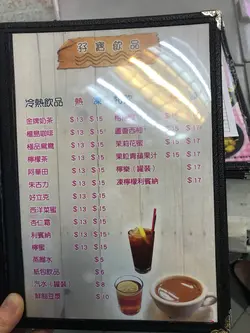 飲品
冷熱飲品 熱 凍
金牌奶茶 $13 $15
檀島咖啡 $13 $15
極品鴛鴦 $13 $15
檸檬茶 $13 $15
阿華田 $13 $15
朱古力 $13 $15
好立克 $13 $15
西洋菜蜜 $13 $15
杏仁霜 $13 $15
利賓納 $13 $15
檸蜜 $13 $15
蒸餾水 $5
紙包飲品 $6
汽水(罐裝) $8
鮮甜豆漿 $10
$15
蘆薈西柚 $15
茉莉花蜜 $17
果粒青蘋果汁 $17
檸樂(罐裝) $17
凍檸檬利賓納 $17